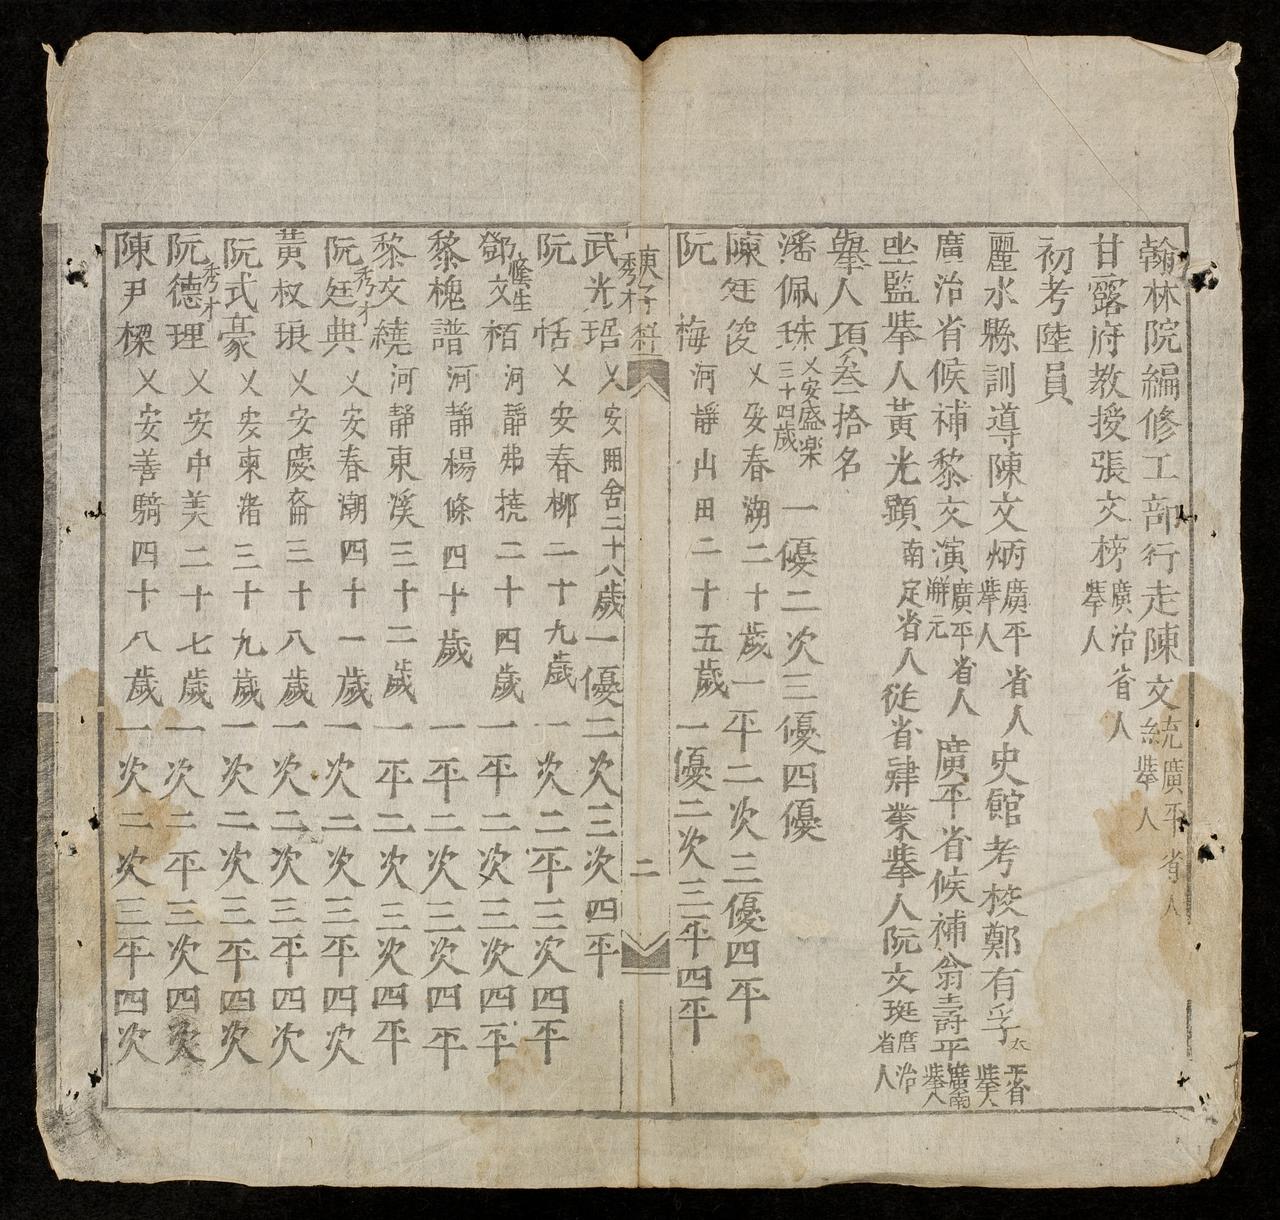 翰林院編修工部行走陳文統廣平省人舉人
甘露府教授張文榜廣治省人舉人
初考陸員
麗水縣訓導陳文炳廣平省人舉人史館考校鄭有孚平省舉人
廣治省候補黎文演廣平省人解元廣平省候補翁壽平廣南舉人
坐監舉人黃光顕南定省人從省肄業舉人阮文珽廣治省人
舉人項叁拾名
潘佩珠乂安盛楽三十四歲一優二次三優四優
陳廷俊乂安春湖二十歲一平二次三優四平
阮梅河靜山田二十五歲一優二次三平四平
庚子科 二
武光琚秀才乂安開舍二十八歲一優二次三次四平
阮恬乂安春柳二十九歲一次二平三次四平
鄧文栢廕生河靜弗撓二十四歲一平二次三次四平
黎槐譜河靜楊條四十歲一平二次三次四平
黎文繞河靜東溪三十二歲一平二次三次四平
阮廷典秀才乂安春潮四十一歲一次二次三平四次
黃叔琅乂安慶裔三十八歲一次二次三平四次
阮式豪乂安東渚三十九歲一次二次三平四次
阮德理秀才乂安中美二十七歲一次二平三次四次
陳尹樑乂安善騎四十八歲一次二次三平四次